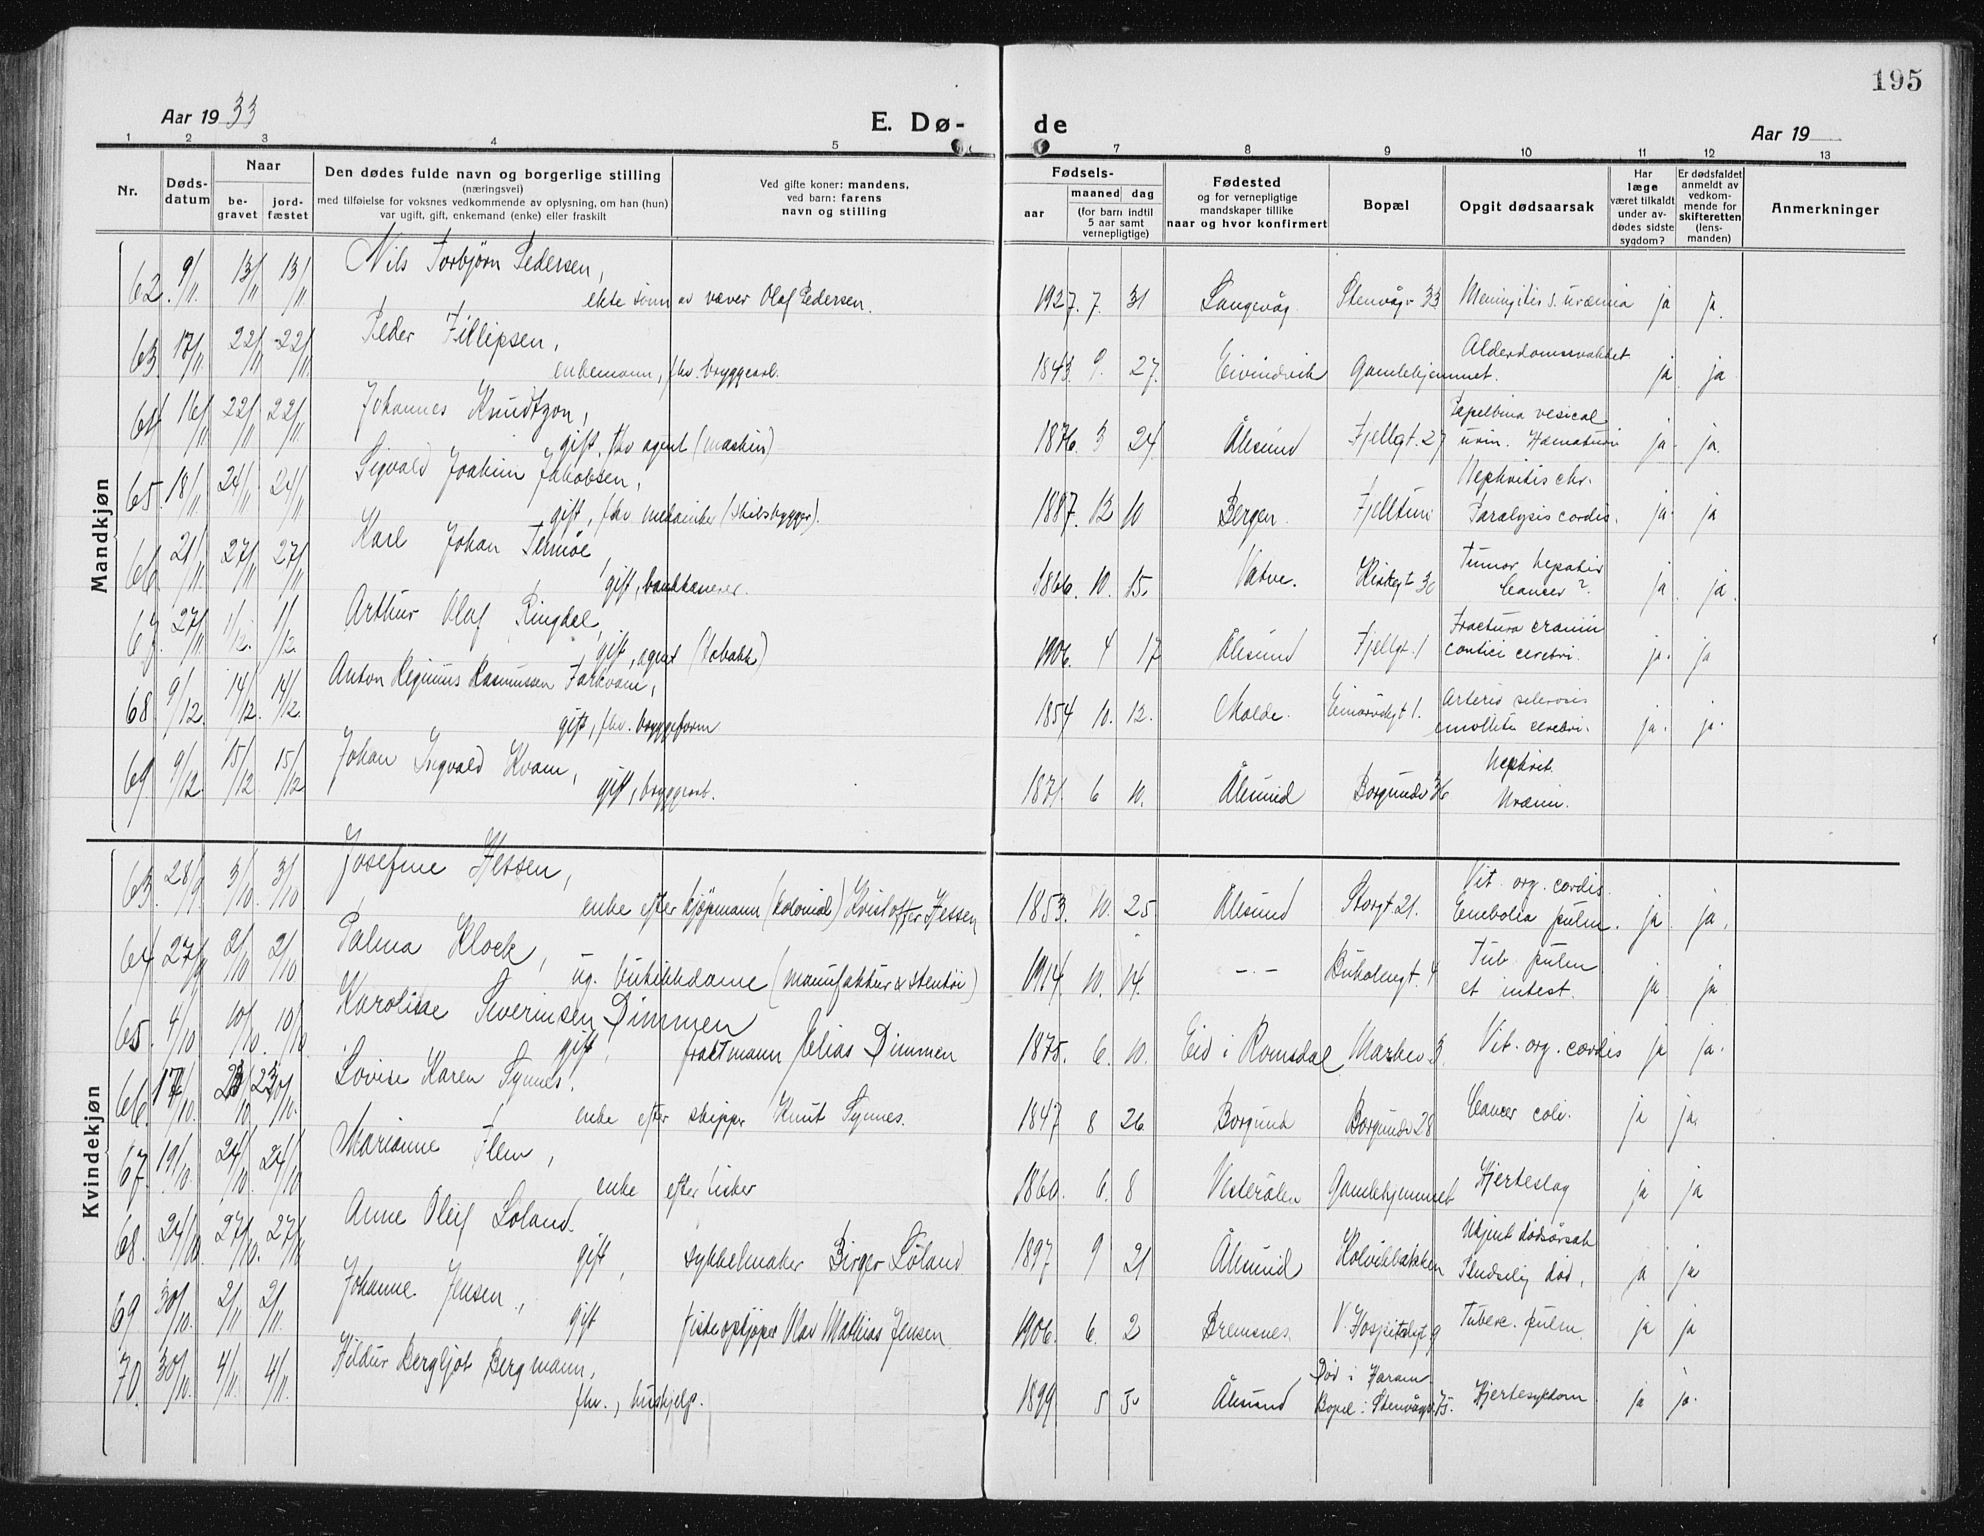 195
Aar 1933
E. Dø- de
Aar 19
1 2 3 4 5 7 8 9 10 11 12 13
Nr.
Døds-datum
Naar
be-gravet
jord-fæstet
Den dødes fulde navn og borgerlige stilling
(næringsvei)
med tilføielse for voksnes vedkommende av oplysning, om han (hun)
var ugift, gift, enkemand (enke) eller fraskilt
Ved gifte koner: mandens,
ved barn: farens
navn og stilling
Fødsels-
aar
maaned dag
(for barn indtil
5 aar samt
vernepligtige)
Fødested
og for vernepligtige
mandskaper tillike
naar og hvor konfirmert
Bopæl
Opgit dødsaarsak
Har
læge
været tilkaldt
under av-
dødes sidste
sygdom?
Er dødsfaldet
anmeldt av
vedkom-
mende for
skifteretten
(lens-
manden)
Anmerkninger
Mandkjøn
Nils Torbjørn Pedersen,
62. 9/11. 13/11 13/11 ekte sønn av væver Olaf Pedersen. 1927. 7. 31 Langevåg Stenvågv. 33 Meningitis s. uræmia ja ja.
Peder Fillipsen, Alderdomssvakhet
63. 17/11 22/11 22/11. enkemann, fhv. bryggearb. 1843. 9. 27. Eivindvik Gamlehjemmet. ja ja
Johannes Knudtzon, vesical
64 16/11 22/11 22/11. gift, fhv agent (maskin) 1876. 3 24 Ålesund Fjellgt. 27 urin. Hæmaturi ja. ja.
Sigvald Joakim Jakobsen, Nephritis chr.
65. 18/11 24/11 24/11 gift, fhv (skibsbygger). 1887. 12 10 Bergen. Fjelltun Paralysis cordis. ja. ja
Karl Johan Ternøe, Tumor hepatis
66 21/11. 27/11 27/11 gift, bankkasserer. 1866. 10. 15. Vatne. 30 Cancer? ja. ja.
Arthur Olaf Ringdal, Fractura cranii
67. 27/11 1/12. 1/12. gift, agent (tobakk) 1906. 4 17 Ålesund Fjellgt. 1 cerebri. ja. ja
Anton Reginius Rasmussen Farkvam, Arterio sclerosis
68 9/12. 14/12. 14/12. gift, fhv. bryggeform 1854 10. 12. Molde. 1. cerebri. ja. ja.
Johan Ingvald Kvam, Nephrit.
69 9/12. 15/12 15/12 gift, bryggearb. 1871. 6 10. Ålesund Borgundv 36 Uræmi.
Kvindekjøn
Josefine Hessen, Vit. org. cordis.
63. 28/9. 3/10. 3/10 enke efter kjøpmann (kolonial) Kristoffer Hessen 1853. 10. 25 Ålesund Storgt. 21. Embolia pulm. ja. ja.
Palma Klock, Tub. pulm
64. 27/9 2/10 2/10 ug. butikkdame (manufaktur & stentøi) 1914. 10. 14. -·- Buholmgt. 4 et intest. ja ja
Karoline Severinsen Dimmen
65. 4/10 10/10. 10/10. gift, fraktmann Elias Dimmen 1875. 6. 10. Eid i Romsdal Markev. 3. Vit. org. cordis ja ja.
Lovise Karen Synnes.
66. 17/10. 23/10 23/10. enke efter skipper Knut Synnes. 1847 8 26 Borgund Borgundv 28 Cancer coli. ja ja.
Marianne Flem,
67. 19/10. 24/10. 24/10 enke efter fisker 1860. 6. 8 Vesterålen Gamlehjemmet Hjerteslag ja ja
Anne Oleif Løland. Ukjent dødsårsak
68. 24/10. 27/10. 27/10 gift, sykkelmaker Birger Løland 1897 9 21 Ålesund Kolvikbakken Pludselig død. ja ja
Johanne Jensen,
69 30/10. 2/11 2/11. gift fiskeopkjøper Olav Mathias Jensen 1906. 6. 2 Bremsnes V. Hospitalgt 9 Tuberc. pulm ja ja
Hildur Bergljot Bergmann, Død i Haram.
70. 30/10. 4/11. 4/11. fhv., hushjelp. 1899 5 5 Ålesund Bopel: Stenvågv. 75. Hjertesykdom ja ja.